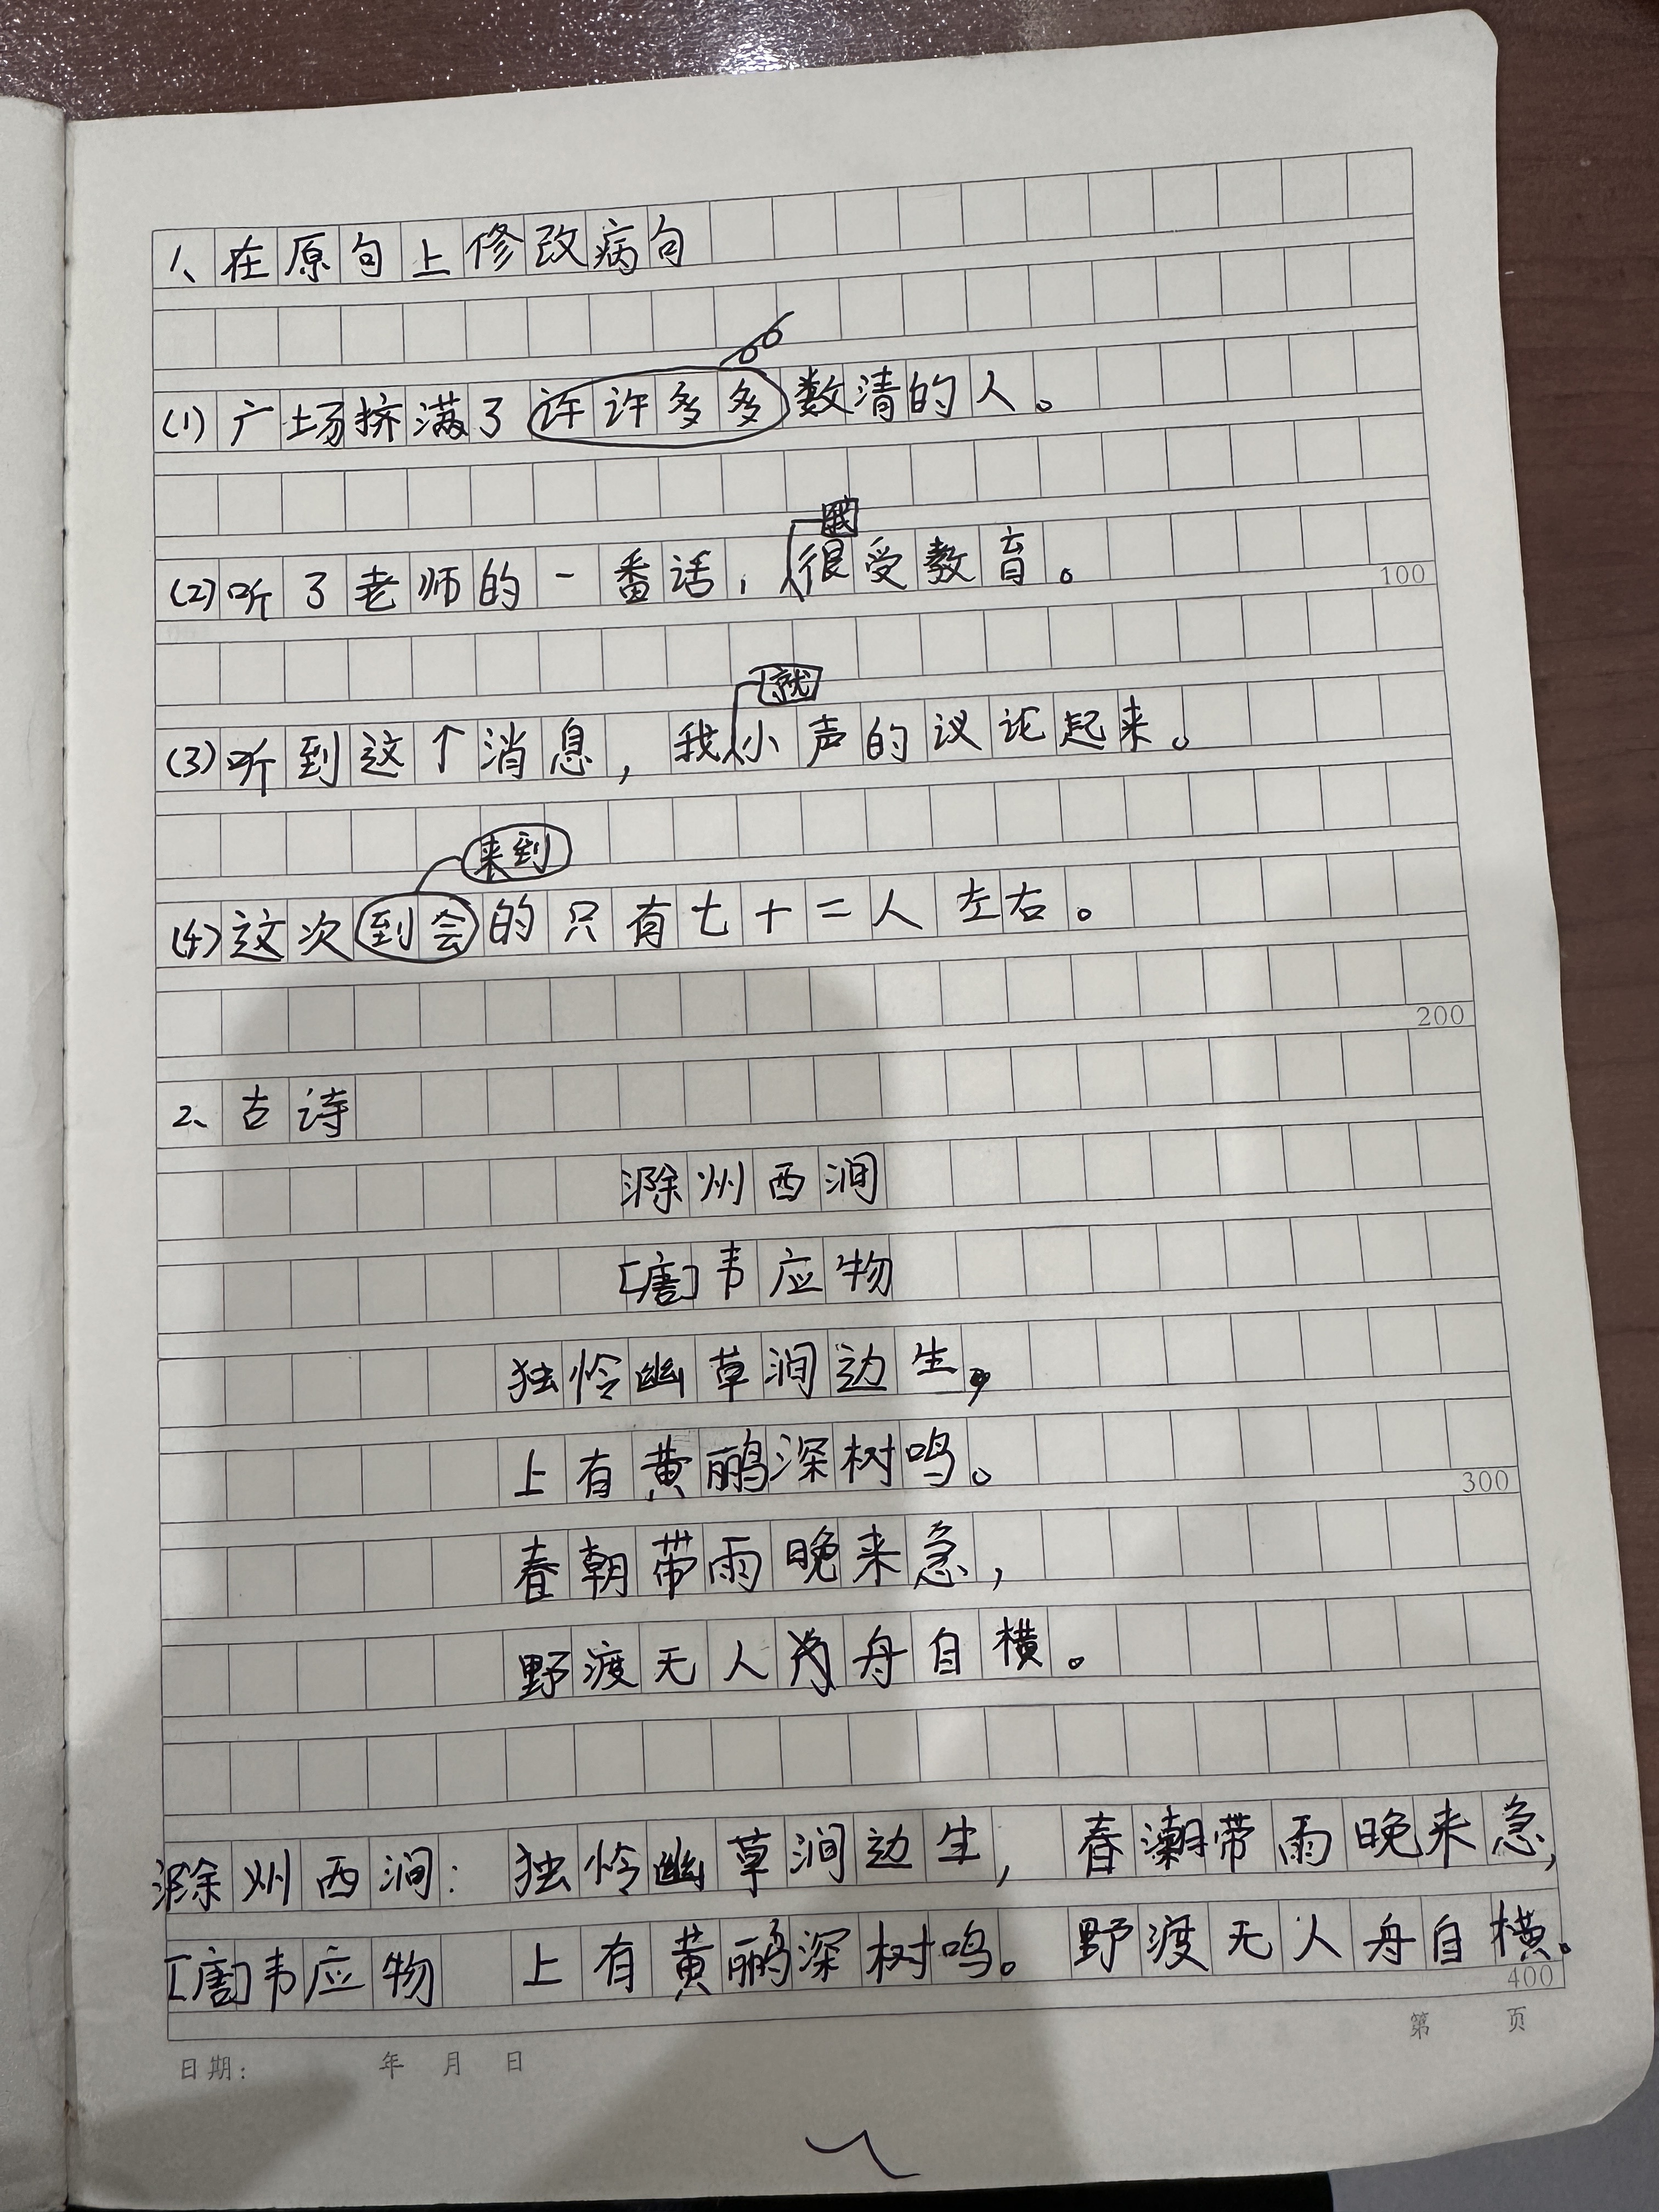 1、在原句上修改病句
(1)广场挤满了许许多多数清的人。
我
(2)听了老师的一番话，很受教育。
100
就
(3)听到这个消息，我小声的议论起来。
来到
(4)这次到会的只有七十二人左右。
200
2、古诗
滁州西涧
[唐]韦应物
独怜幽草涧边生，
上有黄鹂深树鸣。
300
春朝带雨晚来急，
野渡无人舟自横。
滁州西涧：独怜幽草涧边生，春潮带雨晚来急，
[唐]韦应物 上有黄鹂深树鸣。野渡无人舟自横。
400
第 页
日期： 年 月 日